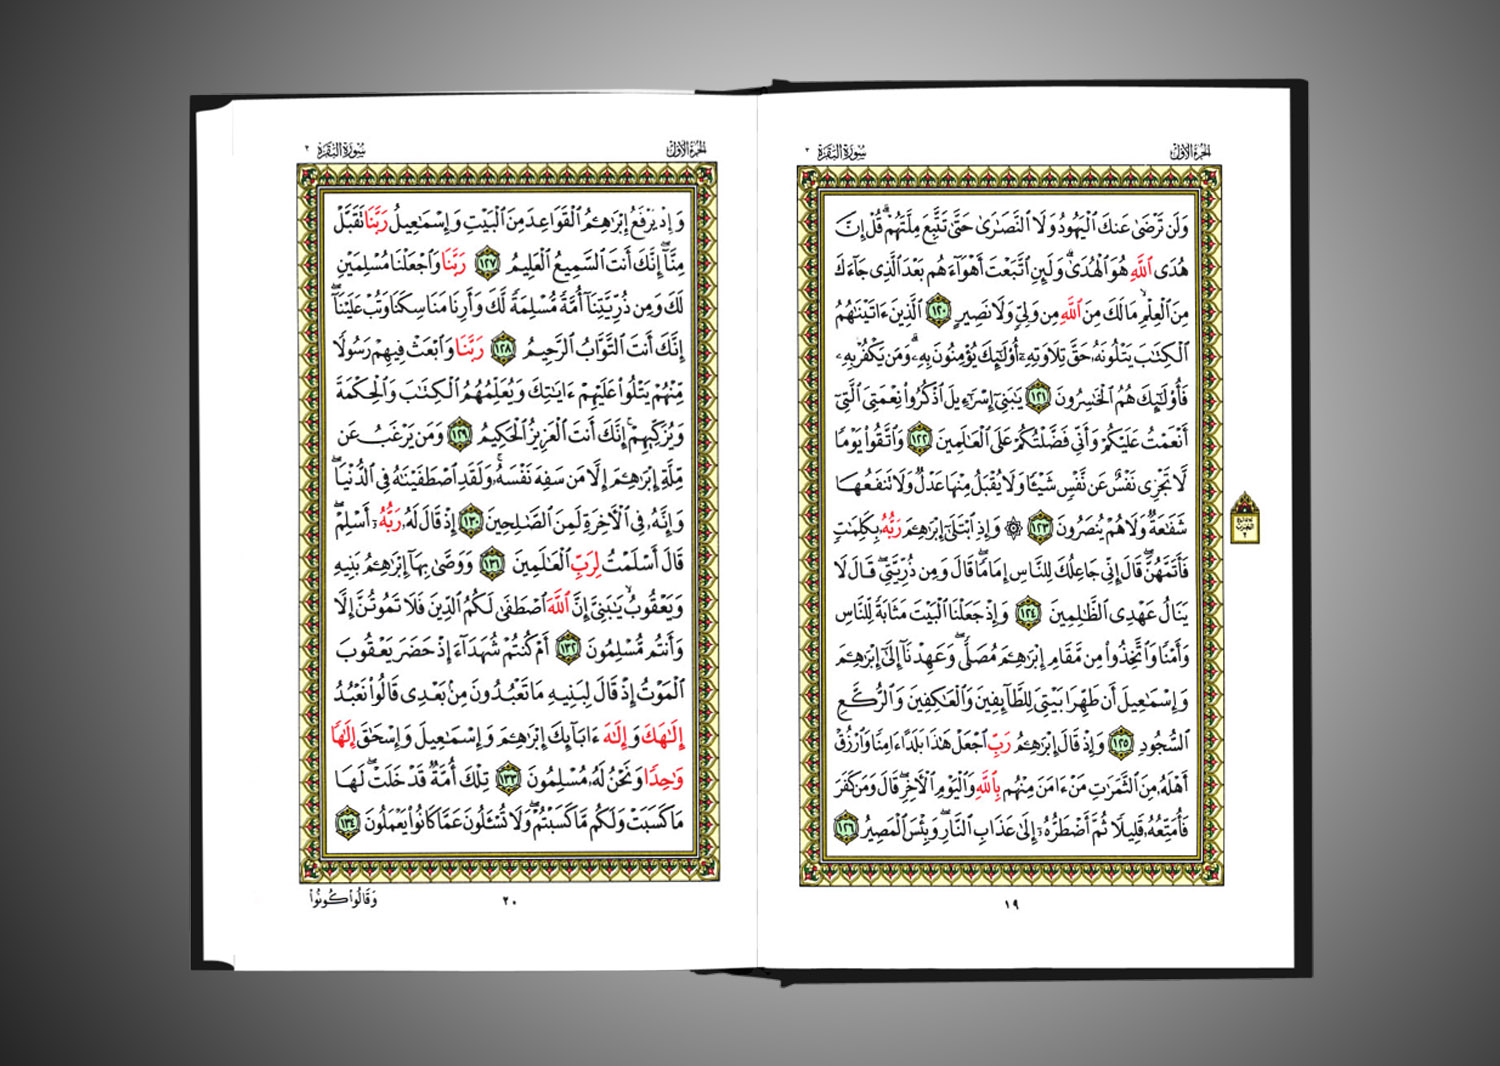 الجزء الأول
سورة البقرة ٢
وَلَن تَرْضَىٰ عَنكَ الْيَهُودُ وَلَا النَّصَارَىٰ حَتَّىٰ تَتَّبِعَ مِلَّتَهُمْ ۗ قُلْ إِنَّ
هُدَى اللَّهِ هُوَ الْهُدَىٰ ۗ وَلَئِنِ اتَّبَعْتَ أَهْوَاءَهُم بَعْدَ الَّذِي جَاءَكَ
مِنَ الْعِلْمِ ۙ مَا لَكَ مِنَ اللَّهِ مِن وَلِيٍّ وَلَا نَصِيرٍ ١٢٠ الَّذِينَ ءَاتَيْنَاهُمُ
الْكِتَابَ يَتْلُونَهُ حَقَّ تِلَاوَتِهِ أُولَٰئِكَ يُؤْمِنُونَ بِهِ ۗ وَمَن يَكْفُرْ بِهِ
فَأُولَٰئِكَ هُمُ الْخَاسِرُونَ ١٢١ يَٰبَنِي إِسْرَٰءِيلَ اذْكُرُوا نِعْمَتِيَ الَّتِي
أَنْعَمْتُ عَلَيْكُمْ وَأَنِّي فَضَّلْتُكُمْ عَلَى الْعَالَمِينَ ١٢٢ وَاتَّقُوا يَوْمًا
لَّا تَجْزِي نَفْسٌ عَن نَّفْسٍ شَيْئًا وَلَا يُقْبَلُ مِنْهَا عَدْلٌ وَلَا تَنفَعُهَا
شَفَاعَةٌ وَلَا هُمْ يُنصَرُونَ ١٢٣ ۞ وَإِذِ ابْتَلَىٰ إِبْرَٰهِـۧمَ رَبُّهُ بِكَلِمَاتٍ
فَأَتَمَّهُنَّ ۖ قَالَ إِنِّي جَاعِلُكَ لِلنَّاسِ إِمَامًا ۖ قَالَ وَمِن ذُرِّيَّتِي ۖ قَالَ لَا
يَنَالُ عَهْدِي الظَّالِمِينَ ١٢٤ وَإِذْ جَعَلْنَا الْبَيْتَ مَثَابَةً لِّلنَّاسِ
وَأَمْنًا وَاتَّخِذُوا مِن مَّقَامِ إِبْرَٰهِـۧمَ مُصَلًّى ۖ وَعَهِدْنَا إِلَىٰ إِبْرَٰهِـۧمَ
وَإِسْمَاعِيلَ أَن طَهِّرَا بَيْتِيَ لِلطَّائِفِينَ وَالْعَاكِفِينَ وَالرُّكَّعِ
السُّجُودِ ١٢٥ وَإِذْ قَالَ إِبْرَٰهِـۧمُ رَبِّ اجْعَلْ هَٰذَا بَلَدًا ءَامِنًا وَارْزُقْ
أَهْلَهُ مِنَ الثَّمَرَاتِ مَنْ ءَامَنَ مِنْهُم بِاللَّهِ وَالْيَوْمِ الْآخِرِ ۖ قَالَ وَمَن كَفَرَ
فَأُمَتِّعُهُ قَلِيلًا ثُمَّ أَضْطَرُّهُ إِلَىٰ عَذَابِ النَّارِ ۖ وَبِئْسَ الْمَصِيرُ ١٢٦
١٩
الجزء الأول
سورة البقرة ٢
وَإِذْ يَرْفَعُ إِبْرَٰهِـۧمُ الْقَوَاعِدَ مِنَ الْبَيْتِ وَإِسْمَاعِيلُ رَبَّنَا تَقَبَّلْ
مِنَّا ۖ إِنَّكَ أَنتَ السَّمِيعُ الْعَلِيمُ ١٢٧ رَبَّنَا وَاجْعَلْنَا مُسْلِمَيْنِ
لَكَ وَمِن ذُرِّيَّتِنَا أُمَّةً مُّسْلِمَةً لَّكَ وَأَرِنَا مَنَاسِكَنَا وَتُبْ عَلَيْنَا ۖ
إِنَّكَ أَنتَ التَّوَّابُ الرَّحِيمُ ١٢٨ رَبَّنَا وَابْعَثْ فِيهِمْ رَسُولًا
مِّنْهُمْ يَتْلُوا عَلَيْهِمْ ءَايَاتِكَ وَيُعَلِّمُهُمُ الْكِتَابَ وَالْحِكْمَةَ
وَيُزَكِّيهِمْ ۚ إِنَّكَ أَنتَ الْعَزِيزُ الْحَكِيمُ ١٢٩ وَمَن يَرْغَبُ عَن
مِّلَّةِ إِبْرَٰهِـۧمَ إِلَّا مَن سَفِهَ نَفْسَهُ ۚ وَلَقَدِ اصْطَفَيْنَاهُ فِي الدُّنْيَا ۖ
وَإِنَّهُ فِي الْآخِرَةِ لَمِنَ الصَّالِحِينَ ١٣٠ إِذْ قَالَ لَهُ رَبُّهُ أَسْلِمْ ۖ
قَالَ أَسْلَمْتُ لِرَبِّ الْعَالَمِينَ ١٣١ وَوَصَّىٰ بِهَا إِبْرَٰهِـۧمُ بَنِيهِ
وَيَعْقُوبُ ۙ يَٰبَنِيَّ إِنَّ اللَّهَ اصْطَفَىٰ لَكُمُ الدِّينَ فَلَا تَمُوتُنَّ إِلَّا
وَأَنتُم مُّسْلِمُونَ ١٣٢ أَمْ كُنتُمْ شُهَدَاءَ إِذْ حَضَرَ يَعْقُوبَ
الْمَوْتُ إِذْ قَالَ لِبَنِيهِ مَا تَعْبُدُونَ مِن بَعْدِي قَالُوا نَعْبُدُ
إِلَٰهَكَ وَإِلَٰهَ ءَابَائِكَ إِبْرَٰهِـۧمَ وَإِسْمَاعِيلَ وَإِسْحَاقَ إِلَٰهًا
وَاحِدًا وَنَحْنُ لَهُ مُسْلِمُونَ ١٣٣ تِلْكَ أُمَّةٌ قَدْ خَلَتْ ۖ لَهَا
مَا كَسَبَتْ وَلَكُم مَّا كَسَبْتُمْ ۖ وَلَا تُسْـَٔلُونَ عَمَّا كَانُوا يَعْمَلُونَ ١٣٤
٢٠
وَقَالُوا كُونُوا